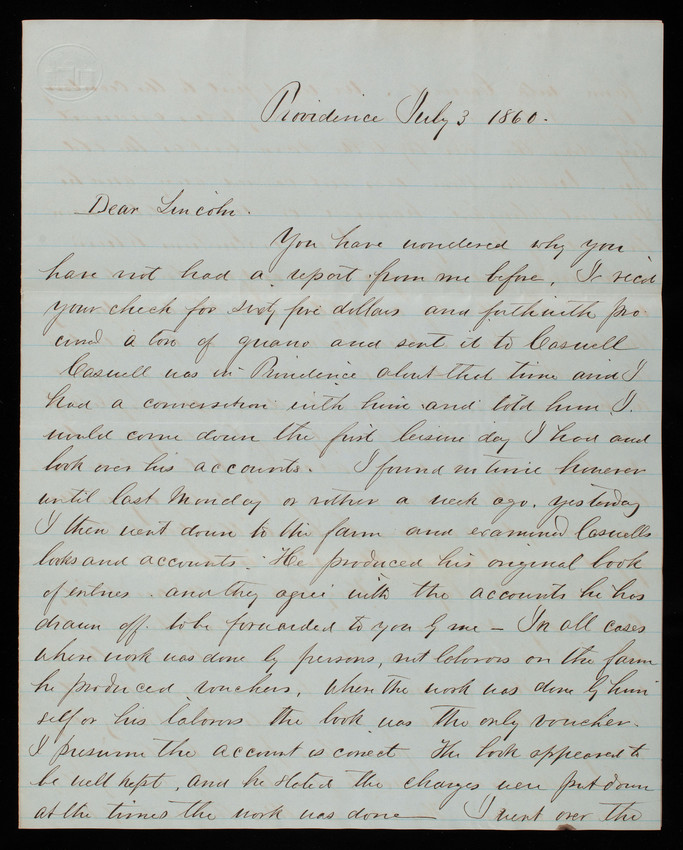 Providence July 3 1860.
Dear Lincoln.
You have wondered why you
have not had a report from me before. I rec'd
your check for sixty five dollars and forthwith pro
cured a ton of guano and sent it to Caswell
Caswell was in Providence about that time and I
had a conversation with him and told him I
would come down the first leisure day I had and
look over his accounts. I found no time however
until last Monday or rather a week ago, yesterday
I then went down to the farm and examined Caswells
books and accounts. He produced his original book
of entries. and they agree with the accounts he has
drawn off. to be forwarded to you by me – In all cases
where work was done by persons, not laborers on the farm
he produced vouchers, when the work was done by him
self or his laborers the book was the only voucher.
I presume the account is correct The book appeared to
be well kept, and he stated the charges were put down
at the times the work was done — I went over the